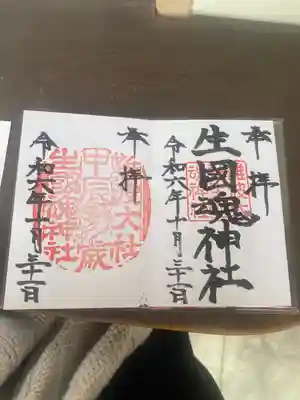 奉拝
生國魂神社
令和六年十月三十一日
奉拝
難波大社
甲辰歳
生國魂神社
令和六年十月三十一日